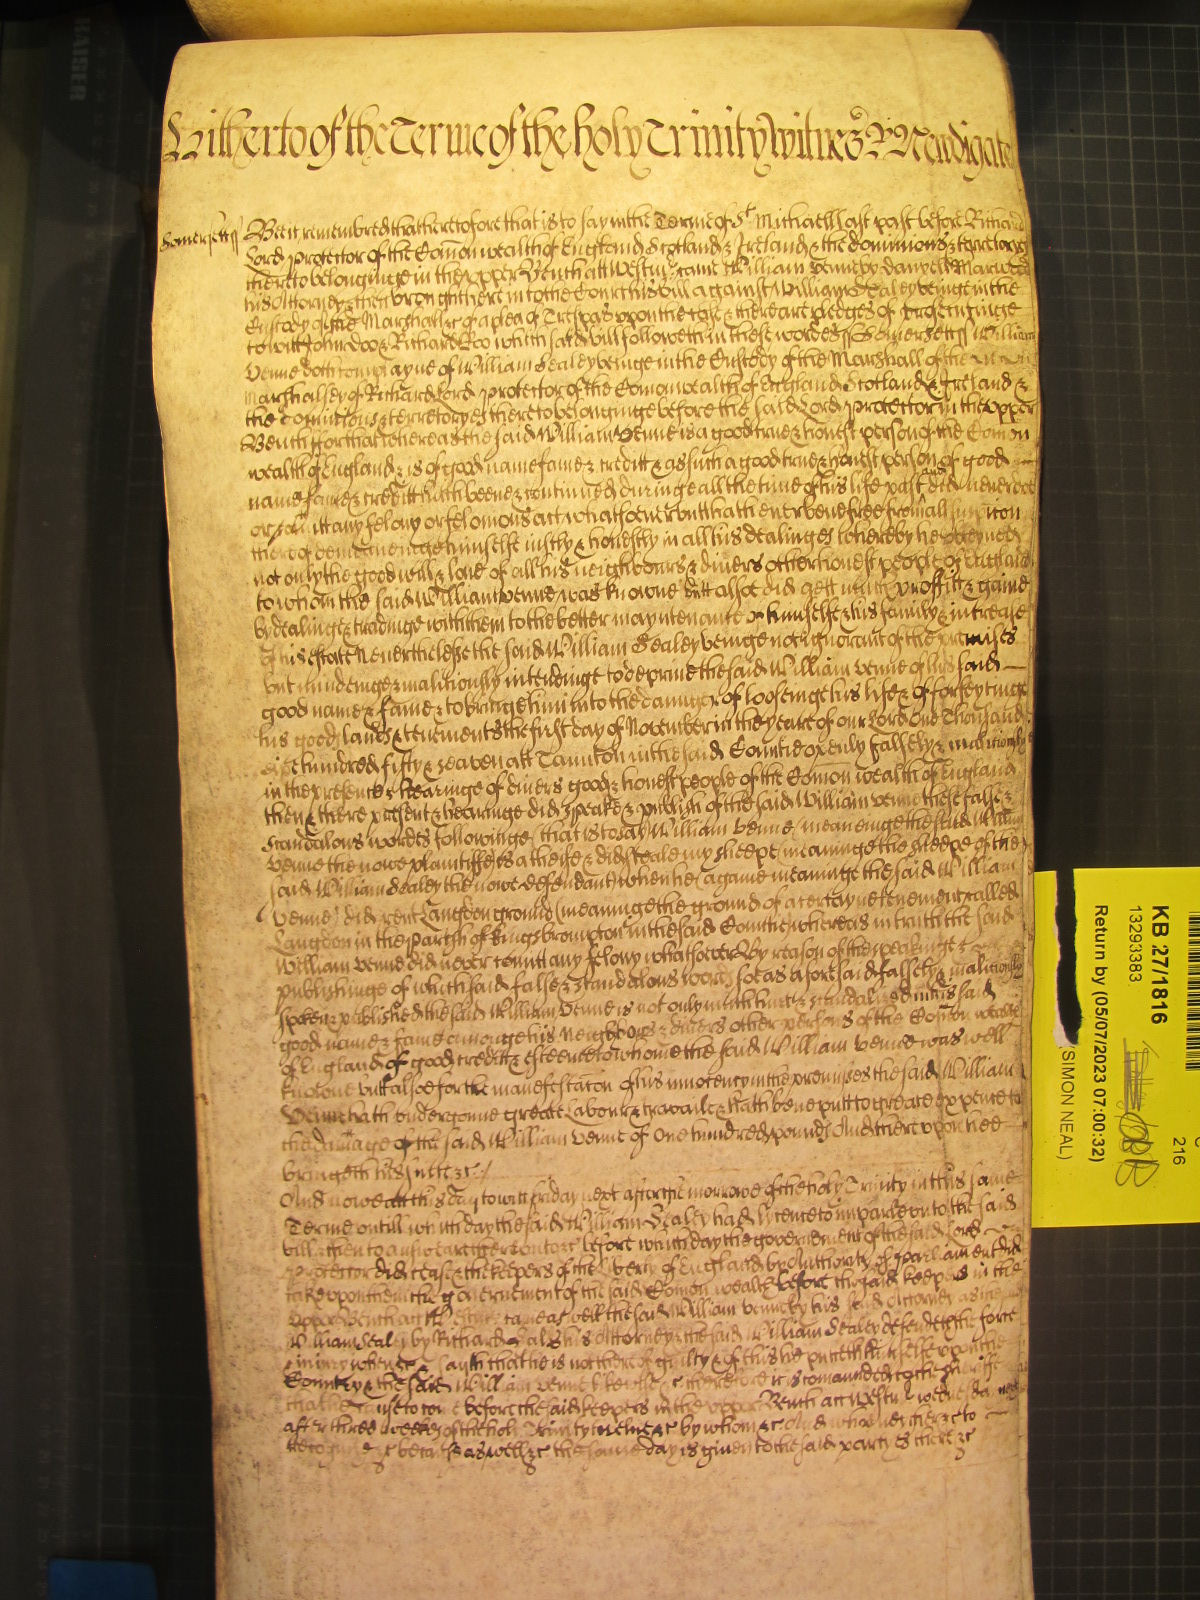 Hitherto of the Terme of the holy Trinity witnes R Newdigate
Somersett ss Bee it remembred that heretofore that is to say in the Terme of St Michaell last past before Richard
Lord Protector of the Comon wealth of England Scotland & Ireland & the dominions & terretoryes
thereto belonginge in the upper Bench att Westmr came William Venne by Danyell Marwood
his Attorney & then brought here into the Court his bill against William Sealey beinge in the
Custody of the Marshall &c of a plea of Trespas upon the case & there are pledges of prosecutinge
to witt John Doo & Richard Roo which said bill followeth in these wordes ss Somersett ss William
Venne doth complayne of William Sealey beinge in the Custody of the Marshall of the
Marshalsey of Richard Lord Protector of the Comon wealth of England Scotland & Ireland &
the dominions & terretoryes thereto belonginge before the said Lord Protector in the upper
Bench for that whereas the said William Venne is a good true & honest person of the Comon
wealth of England & is of good name fame & creditt & as such a good true & honest person of good
name fame & creditt hath beene & continued duringe all the time of his life past and did never
or any felony or felonious act whatsoever but hath ever bene free from all suspicion
thereof demeaneinge himselfe justly & honestly in all his dealinges whereby he obteyned
not only the good will & love of all his neighbours & divers other honest people of England
to whom the said William Venne was knowne butt alsoe did gett much proffitt & gaine
by dealinge & tradinge with them to the better mayntenance of himselfe & his family & increase
of his estate Neverthelesse the said William Sealey beinge not ignorant of the premises
but mindeinge & malitiously intendinge to deprive the said William Venne of his said
good name & fame & to bringe him into the daunger of looseinge his life & of forfeytinge
his goods lands & tenements the first day of November in the yeare of our Lord One Thousand
sixe hundred fifty & seaven att Taunton in the said Countie openly falsely & malitiously
in the presence & hearinge of divers good & honest people of the Comon wealth of England
then & there present & hearinge did speake & publish of the said William Venne these false &
scandalous wordes followinge (that is to say) William Venne (meaninge the said William
Venne the nowe plaintiffe) is a theife & did steale my sheepe (meaninge the sheepe of the
said William Sealey the nowe defendant) when he (againe meaninge the said William
Venne) did rent Langdon ground (meaninge the ground of a certayne tenement called
Langdon in the Parish of Kingsbrompton in the said Countie) whereas in truth the said
William Venne did never comitt any felony whatsoever By reason of the speakinge &
publishinge of which said false & scandalous wordes soe as aforesaid falsely & malitiously
spoken & published the said William Venne is not only much hurt & scandalized in his said
good name & fame amonge his Neighbors & divers other persons of the Comon wealth
of England of good creditt & esteeme to whome the said William Venne was well
knowne butt alsoe for the manefestacon of his innocency in the premisses the said William
Venne hath undergonne greate Labour & travaile & hath bene putt to greate expence to
the damage of the said William Venne of One hundred pounds And thereupon hee
bringeth his suite &c
And nowe att this day to witt friday next after the morrowe of the holy Trinity in this same
Terme untill which day the said William Sealey had lycence to imparle unto the said
bill & then to answeare thereunto &c before which day the governement of the said Lord
Protector did cease & the keepers of the liberty of England by Authority of Parliament did
take upon them the governement of the said Comon wealth before the said keepers in the
upper Bench att Westmr came as well the said William Venne by his said Attorney as the said
William Sealy by Richard his Attorney & the said William Sealey defendeth the force
& iniury when &c & saith that he is not thereof guilty & of this he putteth himselfe upon the
Country & the said William Venne likewise &c therefore it is comaunded to the Sheriffe
that he cause to come before the said keepers in the upper Bench att Westmr Wednesday next
after three weekes of the holy Trinity twelve &c by whom &c And who neither &c to
recognize &c because as well &c the same day is given to the said partyes there &c
KB 27/1816
13293383
Return by (05/07/2023 07:00:32)
(SIMON NEAL)
216